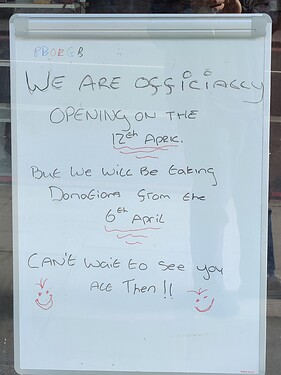 PBORGB
WE ARE OFFICIALLY
OPENING ON THE
12th APRIL.
But We Will Be taking
Donations from the
6th April
CAN'T Wait to see you
ALL Then !!